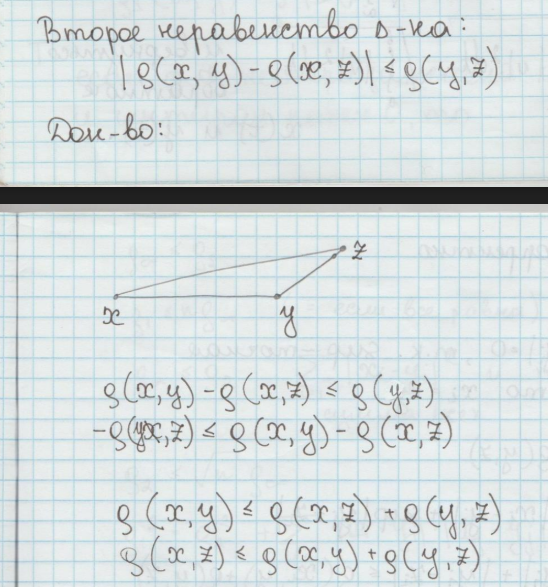 Второе неравенство Δ-ка:
|ρ(x, y) - ρ(x, z)| ≤ ρ(y, z)
Док-во:
z
x
y
ρ(x, y) - ρ(x, z) ≤ ρ(y, z)
-ρ(y, z) ≤ ρ(x, y) - ρ(x, z)
ρ(x, y) ≤ ρ(x, z) + ρ(y, z)
ρ(x, z) ≤ ρ(x, y) + ρ(y, z)